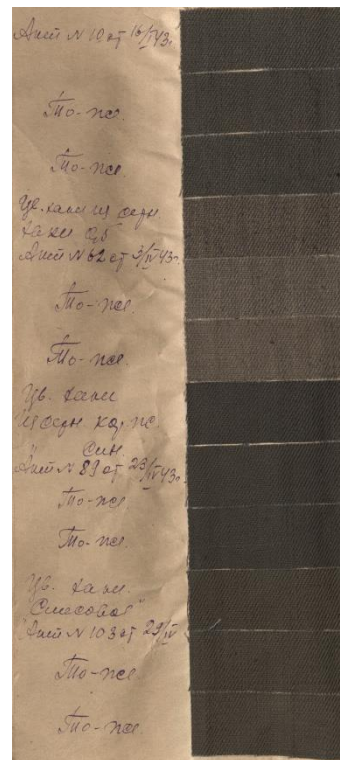 Акт N 10 от 16/IV 43г.
То-же.
То-же.
Цв. хаки из серн.
хаки
Акт N 62 от 3/IV 43г.
То-же.
То-же.
Цв. хаки
из серн.
син.
Акт N 89 от 23/IV 43г.
То-же
То-же.
Цв. хаки.
"Смесовая"
Акт N 103 от 29/IV
То-же.
То-же.